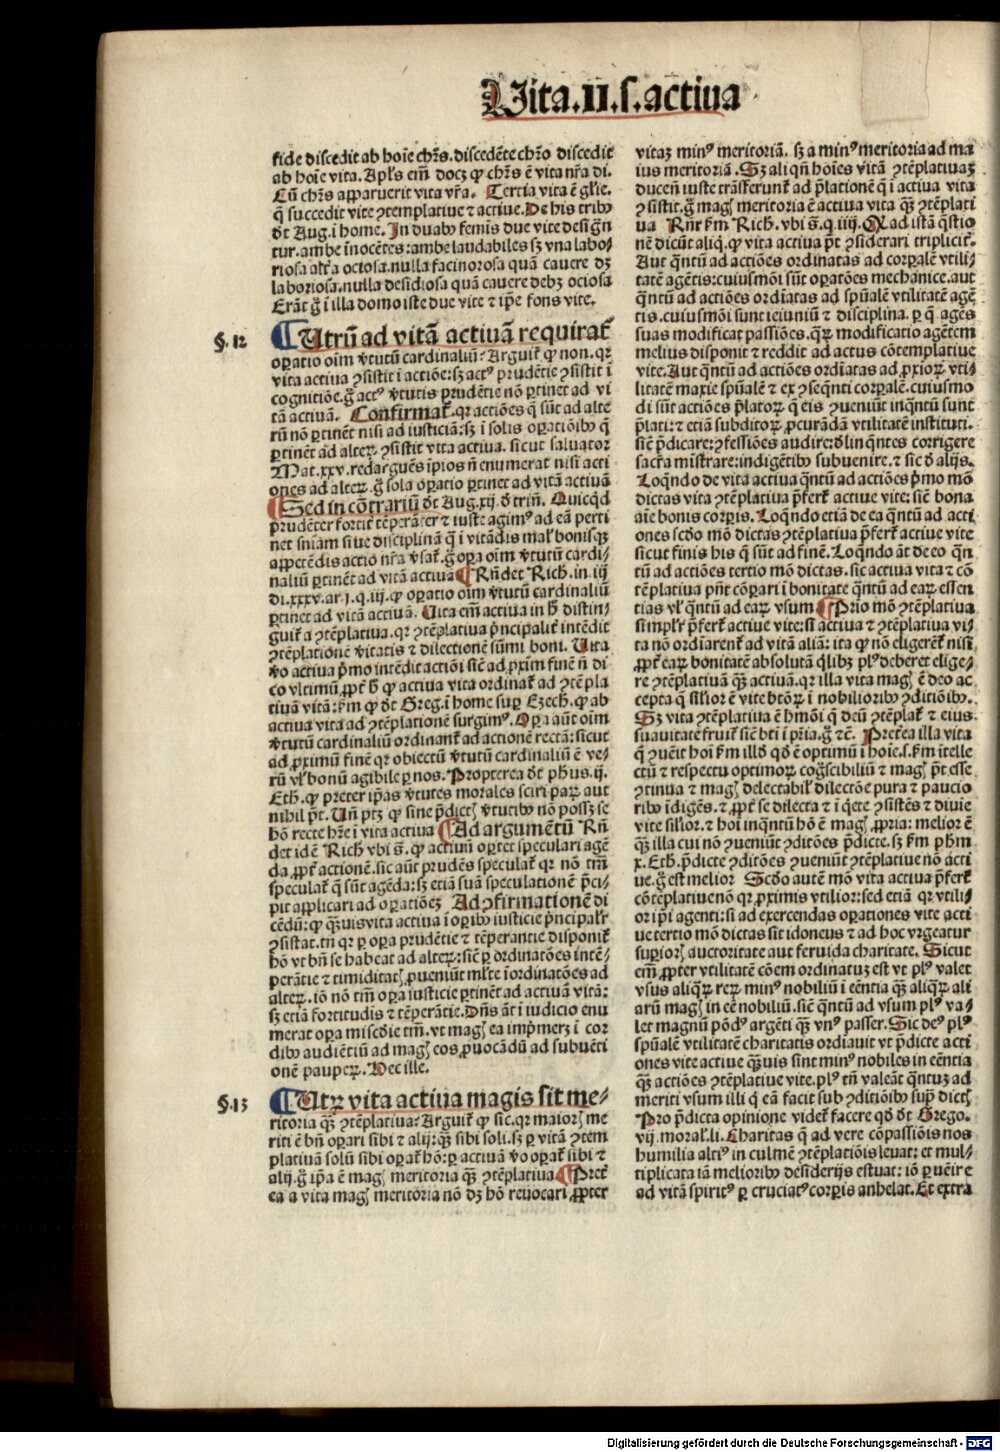 Vita.II.s.actiua
fide discedit ab hoīe chr̄s.discedēte chr̄o discedit
ab hoīe vita. Apl's em̄ docꝫ ꝙ chr̄s ē vita nr̄a di.
Cū chr̄s apparuerit vita vr̄a. Tertia vita ē gl'ie.
q̄ succedit vite ꝯtemplatiue ⁊ actiue. De his tribꝰ
dt̄ Aug. i home. In duabꝰ femis due vite design̄
tur. ambe īnocētes: ambe laudabiles sꝫ vna labo/
riosa alr̄a ociosa. nulla facinorosa quā cauere dꝫ
laboriosa. nulla desidiosa quā cauere debꝫ ociosa
Erāt g̊ i illa domo iste due vite ⁊ ip̄e fons vite.
§.12
Utrū ad vitā actiuā requirat̄
oꝑatio oīm v̄tutū cardinaliū? Arguit̄ ꝙ non. qꝛ
vita actiua ꝯsistit ī actiōe: sꝫ actꝰ prudētie ꝯsistit ī
cognitiōe. g̊ actꝰ v̄tutis prudētie nō ꝑtinet ad vi
tā actiuā. Confirmat̄. qꝛ actiōes q̄ sūt ad alte
rū nō ꝑtinēt nisi ad iusticiā: sꝫ ī solis oꝑatiōibꝰ q̄
ꝑtinēt ad alteꝝ ꝯsistit vita actiua. sicut saluator
Mat. xxv. redarguēs īpios n̄ enumerat nisi acti
ones ad alteꝝ. g̊ sola oꝑatio ꝑtinet ad vitā actiuā
Sed in cōtrariū dt̄ Aug. xij. d̄ trin̄. Quicqd
prudēter fortit̄ tēperāter ⁊ iuste agimꝰ ad eā perti
net sniam siue disciplinā q̄ ī vitādis mal' bonisqꝫ
appetēdis actio nr̄a v̄sat̄. g̊ oꝑa oīm v̄tutū cardi/
naliū ꝑtinēt ad vitā actiuā Rn̄det Rich. in. iij
di. xxxv. ar. j. q. iij. ꝙ oꝑatio oīm v̄tutū cardinaliū
ꝑtinet ad vitā actiuā. Vita em̄ actiua in h̄ distin/
guit̄ a ꝯtēplatiua. qꝛ ꝯtēplatiua p̄ncipalit̄ intēdit
ꝯtēplationē v̄itatis ⁊ dilectionē sūmi boni. Vita
v̄o actiua p̄mo intēdit actiōi sic̄ ad ꝓxim̄ finē n̄ di
co vltimū ꝓpt̄ h̄ ꝙ actiua vita ordinat̄ ad ꝯtēpla
tiuā vitā: ẜm ꝙ dt̄ Greg. i home sup Ezech. ꝙ ab
actiua vita ad ꝯtēplationē surgimꝰ. Oꝑa aūt oīm
v̄tutū cardinaliū ordinant̄ ad actionē rectā: sicut
ad ꝓximū finē qꝛ obiectū v̄tutū cardinaliū ē ve/
rū vl' bonū agibile ꝑ nos. Propterea dt̄ ph̄us. ij.
Eth. ꝙ preter ip̄as v̄tutes morales sciri paꝝ aut
nihil pt̄. Un̄ ptꝫ ꝙ sine p̄dict̄ v̄tutibꝰ nō poss̄ se
hō recte hr̄e ī vita actiua Ad argumētū Rn̄
det idē Rich vbi s̄. ꝙ actiuū oꝑtet speculari agē
da ꝓpt̄ actionē. sic aūt prudēs speculat̄ qꝛ nō tm̄
speculat̄ q̄ sūt agēda: sꝫ etiā suā speculationē p̄ci/
pit applicari ad oꝑatiōeꝫ Ad ꝯfirmationē di
cēdū: ꝙ q̄ꝫuis vita actiua ī oꝑibꝰ iusticie p̄ncipal'r
ꝯsistat. tn̄ qꝛ ꝑ oꝑa prudētie ⁊ tēperantie disponit̄
hō vt bn̄ se habeat ad alteꝝ: sic̄ ꝑ ordinatōes intē/
perātie ⁊ timiditat̄ ꝓueniūt ml'te īordinatōes ad
alteꝝ. iō nō tm̄ oꝑa iusticie ꝑtinēt ad actiuā vitā:
sꝫ etiā fortitudis ⁊ tēperātie. Dn̄s āt ī iudicio enu
merat oꝑa miscd̄ie tm̄. vt maḡ ea imp̄merꝫ ī cor
dibꝰ audiētiū ad maḡ eos ꝓuocādū ad subuēti
onē pauꝑeꝝ. Hec ille.
§.13
Utꝝ vita actiua magis sit me/
ritoria q̄ꝫ ꝯtēplatiua? Arguit̄ ꝙ sic. qꝛ maior̄ me
riti ē bn̄ oꝑari sibi ⁊ alij: q̄ꝫ sibi soli. sꝫ ꝑ vitā ꝯtem
platiuā solū sibi oꝑat̄ hō: ꝑ actiuā v̄o oꝑat̄ sibi ⁊
alij. g̊ ip̄a ē maḡ meritoria q̄ꝫ ꝯtēplatiua Pret̄
ea a vita maḡ meritoria nō dꝫ hō reuocari ꝓpter
vitaꝫ minꝰ meritoriā. sꝫ a minꝰ meritoria ad ma
ius meritoriā. Sꝫ aliqn̄ hoīes vitā ꝯtēplatiuaꝫ
ducen̄ iuste trāsferunt̄ ad p̄lationē q̄ ī actiua vita
ꝯsistit. g̊ maḡ meritoria ē actiua vita q̄ꝫ ꝯtēplati
ua Rn̄t ẜm Rich. vbi s̄. q. iiij. Q ad istā q̄stio
nē dicūt aliq. ꝙ vita actiua pt̄ ꝯsiderari tripliciť.
Aut q̄ntū ad actiōes ordinatas ad corꝑalē vtili/
tatē agētis: cuiusmōi sūt oꝑatōes mechanice. aut
q̄ntū ad actiōes ordīatas ad sp̄ualē vtilitatē agē
tis. cuiusmōi sunt ieiuniū ⁊ disciplina. ꝑ q̄ agēs
suas modificat passiōes. q̄ꝝ modificatio agētem
melius disponit ⁊ reddit ad actus cōtemplatiue
vite. Aut q̄ntū ad actiōes ordīatas ad ꝓxioꝝ vti/
litatē maxie sp̄ualē ⁊ ex ꝯseq̄nti corꝑalē. cuiusmo
di sūt actiōes p̄latoꝝ q̄ eis ꝯueniūt inq̄ntū sunt
p̄lati: ⁊ etiā subditoꝝ ꝓcurādā vtilitatē instituti.
sic̄ p̄dicare: ꝯfessiōes audire: d̄linq̄ntes corrigere
sacr̄a mīstrare: indigētibꝰ subuenire. ⁊ sic d̄ alijs.
Loq̄ndo de vita actiua q̄ntū ad actiōes p̄mo mō
dictas vita ꝯtēplatiua p̄fert̄ actiue vite: sic̄ bona
aīe bonis corꝑis. Loq̄ndo etiā de ea q̄ntū ad acti
ones scd̄o mō dictas ꝯtēplatiua p̄fert̄ actiue vite
sicut finis his q̄ sūt ad finē. Loq̄ndo āt de eo q̄n
tū ad actiōes tertio mō dictas. sic actiua vita ⁊ cō
tēplatiua pn̄t cōꝑari ī bonitate q̄ntū ad eaꝝ essen
tias vl' q̄ntū ad eaꝝ vsum Prīo mō ꝯtēplatiua
simpl'r p̄fert̄ actiue vite: si actiua ⁊ ꝯtēplatiua vi
ta nō ordīarent̄ ad vitā aliā: ita ꝙ nō eligerēt̄ nisi
ꝓpt̄ eaꝝ bonitatē absolutā q̄libꝫ plꝰ deberet elige/
re ꝯtēplatiuā q̄ꝫ actiuā. qꝛ illa vita maḡ ē deo ac
cepta q̄ sil'ior ē vite btōꝝ ī nobilioribꝰ ꝯditiōibꝰ.
Sꝫ vita ꝯtēplatiua ē hmōi q̄ deū ꝯtēplat̄ ⁊ eius
suauitate fruit̄ sic̄ bti ī pr̄ia. g̊ ⁊c̄. Pretēa illa vita
q̄ ꝯueit hoī ẜm illd̄ qd̄ ē optimū ī hoīe. s. ẜm ītelle
ctū ⁊ respectu optimoꝝ coḡscibiliū ⁊ maḡ pt̄ esse
ꝯtinua ⁊ maḡ delectabil' dilectōe pura ⁊ paucio
ribꝰ īdigēs. ⁊ ꝓpt̄ se dilecta ⁊ ī q̄ete ꝯsistēs ⁊ diuīe
vite sil'ior. ⁊ hoī inq̄ntū hō ē maḡ ꝓpria: melior ē
q̄ꝫ illa cui nō ꝯueniūt ꝯditōes p̄dicte. sꝫ ẜm ph̄m
x. Eth. p̄dicte ꝯditōes ꝯueniūt ꝯtēplatiue nō acti
ue. g̊ est melior Scd̄o autē mō vita actiua p̄fert̄
cōtēplatiue nō qꝛ ꝓximis vtilior: sed etiā qꝛ vtili/
or ip̄i agenti: si ad exercendas oꝑationes vite acti
ue tertio mō dictas sit idoneus ⁊ ad hoc vrgeatur
superiorꝭ auctoritate aut feruida charitate. Sicut
em̄ ꝓpter vtilitatē cōem ordinatuꝫ est vt plꝰ valet
vsus aliqꝝ reꝝ minꝰ nobiliū ī eēntia q̄ꝫ aliqꝝ ali
arū maḡ in eē nobiliū. sic̄ q̄ntū ad vsum plꝰ va/
let magnū pōdꝰ argēti q̄ꝫ vnꝰ passer. Sic deꝰ plꝰ
sp̄ualē vtilitatē charitatis ordiauit vt p̄dicte acti
ones vite actiue q̄ꝫuis sint minꝰ nobiles in eēntia
q̄ꝫ actiōes ꝯtēplatiue vite. plꝰ tn̄ valeāt q̄ntuꝫ ad
meriti vsum illi q̄ eā facit sub ꝯditiōibꝰ supͣ dict̄
Pro p̄dicta opinione videt̄ facere qd̄ dt̄ Grego.
vij. moral'. li. Charitas q̄ ad vere cōpassiōis nos
humilia altiꝰ in culmē ꝯtēplatiōis leuat: et mul/
tiplicata iā melioribꝰ desiderijs estuat: iō ꝑuēire
ad vitā spiritꝰ ꝑ cruciatꝰ corꝑis anhelat. Et extra
Digitalisierung gefördert durch die Deutsche Forschungsgemeinschaft - DFG